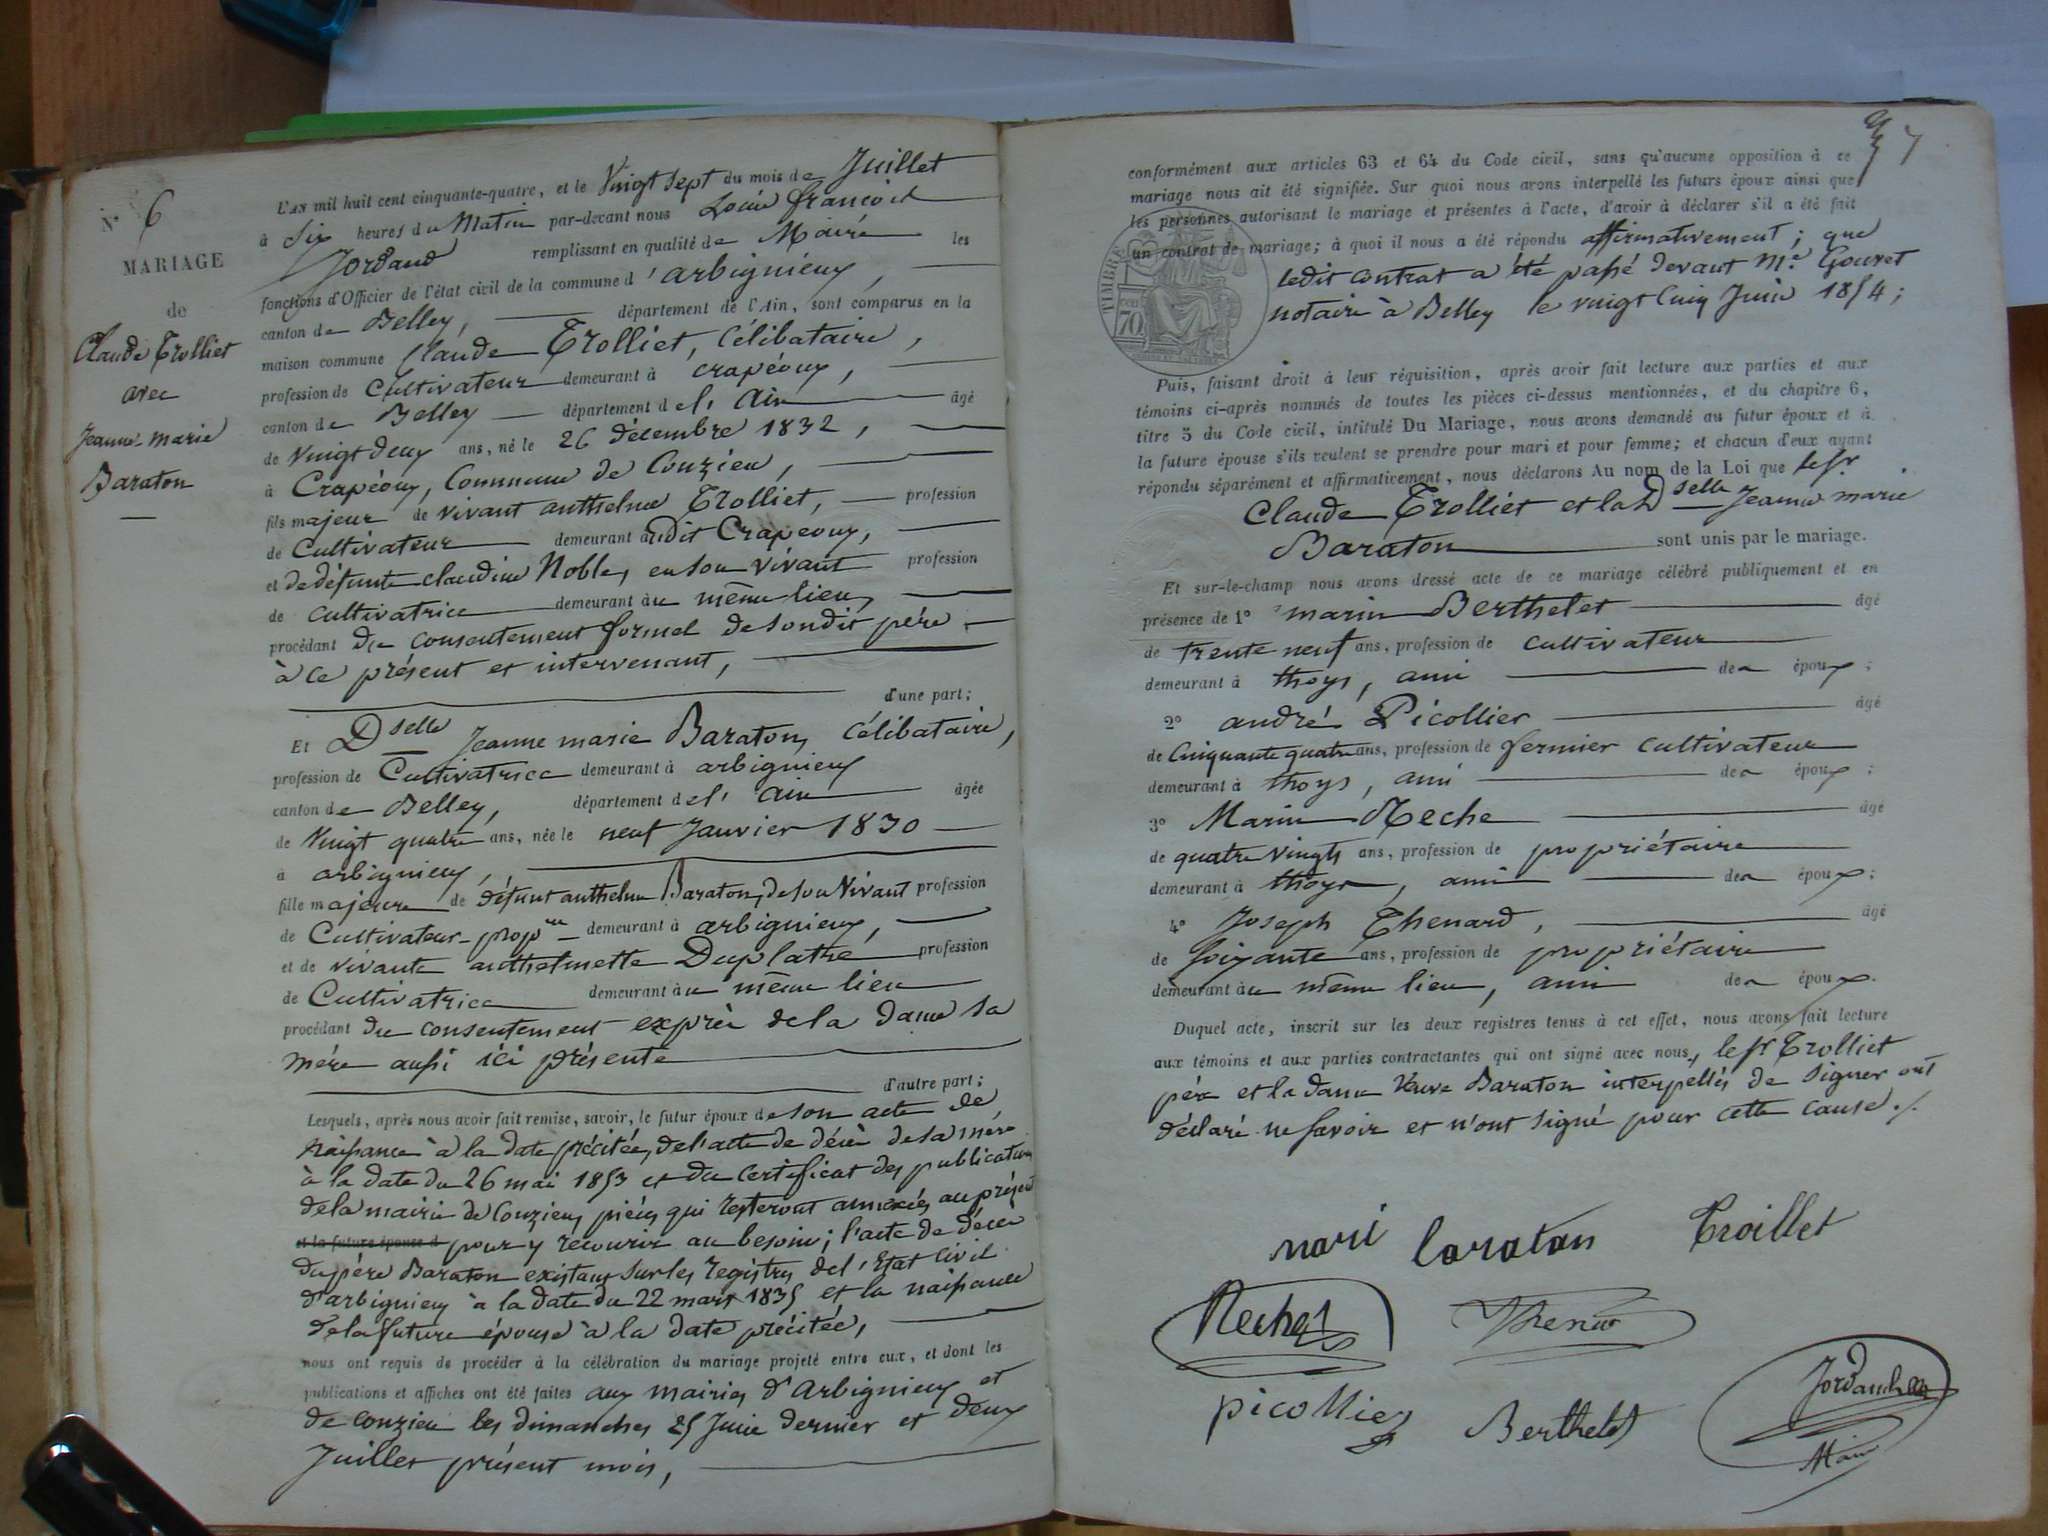 N° 6
MARIAGE
de
Claude Trolliet
avec
Jeanne-Marie
Baraton
L'AN mil huit cent cinquante-quatre, et le Vingt sept du mois de Juillet
à Six heures du Matin par-devant nous Louis françois
Jordand remplissant en qualité de Maire les
fonctions d'Officier de l'état civil de la commune d'arbignieux,
canton de Belley, département de l'Ain, sont comparus en la
maison commune Claude Trolliet, Célibataire,
profession de Cultivateur demeurant à Crapéoux,
canton de Belley département de l'Ain âgé
de Vingt deux ans, né le 26 décembre 1832,
à Crapéoux, Commune de Conzieu,
fils majeur de vivant anthelme Trolliet, profession
de Cultivateur demeurant audit Crapeoux,
et de défunte claudine Noble, en son vivant profession
de cultivatrice demeurant au même lieu,
procédant du consentement formel de sondit père
à ce présent et intervenant,
d'une part;
Et Dselle Jeanne marie Baraton, Célibataire,
profession de Cultivatrice demeurant à arbignieux
canton de Belley, département de l'ain âgée
de Vingt quatre ans, née le neuf Janvier 1830
à arbignieux,
fille majeure de défunt anthelme Baraton, de son Vivant profession
de Cultivateur-propre demeurant à arbignieux,
et de vivante anthelmette Duplatre profession
de Cultivatrice demeurant au même lieu
procédant du consentement exprès de la dame sa
mère aussi ici présente
d'autre part;
Lesquels, après nous avoir fait remise, savoir, le futur époux de son acte de
Naissance à la date précitée, de l'acte de décès de sa mère
à la date du 26 mai 1853 et du certificat des publications
de la mairie de Conzieu, pièces qui resteront annexées au présent
et la future épouse d pour y recourir au besoin; l'acte de décès
du père Baraton existant sur les registres de l'Etat Civil
d'arbignieu à la date du 22 mars 1835 et la naissance
de la future épouse à la date précitée,
nous ont requis de procéder à la célébration du mariage projeté entre eux, et dont les
publications et affiches ont été faites aux mairies d'Arbignieux et
de conzieu les dimanches 25 Juin dernier et deux
Juillet présent mois,
7
conformément aux articles 63 et 64 du Code civil, sans qu'aucune opposition à ce
mariage nous ait été signifiée. Sur quoi nous avons interpellé les futurs époux ainsi que
les personnes autorisant le mariage et présentes à l'acte, d'avoir à déclarer s'il a été fait
un contrat de mariage; à quoi il nous a été répondu affirmativement; que
ledit contrat a été passé devant Me. Gouret
notaire à Belley le vingt Cinq Juin 1854;
TIMBRE
70
Puis, faisant droit à leur réquisition, après avoir fait lecture aux parties et aux
témoins ci-après nommés de toutes les pièces ci-dessus mentionnées, et du chapitre 6,
titre 5 du Code civil, intitulé Du Mariage, nous avons demandé au futur époux et à
la future épouse s'ils veulent se prendre pour mari et pour femme; et chacun d'eux ayant
répondu séparément et affirmativement, nous déclarons Au nom de la Loi que le Sr
Claude Trolliet et la Dselle Jeanne marie
Baraton sont unis par le mariage.
Et sur-le-champ nous avons dressé acte de ce mariage célébré publiquement et en
présence de 1° marin Berthelet âgé
de trente neuf ans, profession de cultivateur
demeurant à thoys, ami des époux;
2° andré Picollier âgé
de Cinquante quatre ans, profession de fermier cultivateur
demeurant à thoys, ami des époux;
3° Marin Neche âgé
de quatre vingts ans, profession de propriétaire
demeurant à thoys, ami des époux;
4° Joseph Thenard, âgé
de Soixante ans, profession de propriétaire
demeurant au même lieu, ami des époux.
Duquel acte, inscrit sur les deux registres tenus à cet effet, nous avons fait lecture
aux témoins et aux parties contractantes qui ont signé avec nous, le Sr Trolliet
père et la dame Veuve Baraton interpellés de Signer ont
déclaré ne savoir et n'ont signé pour cette cause ./.
mari baraton Troillet
Neche Thenar
picollier Berthelet Jordand
Maire